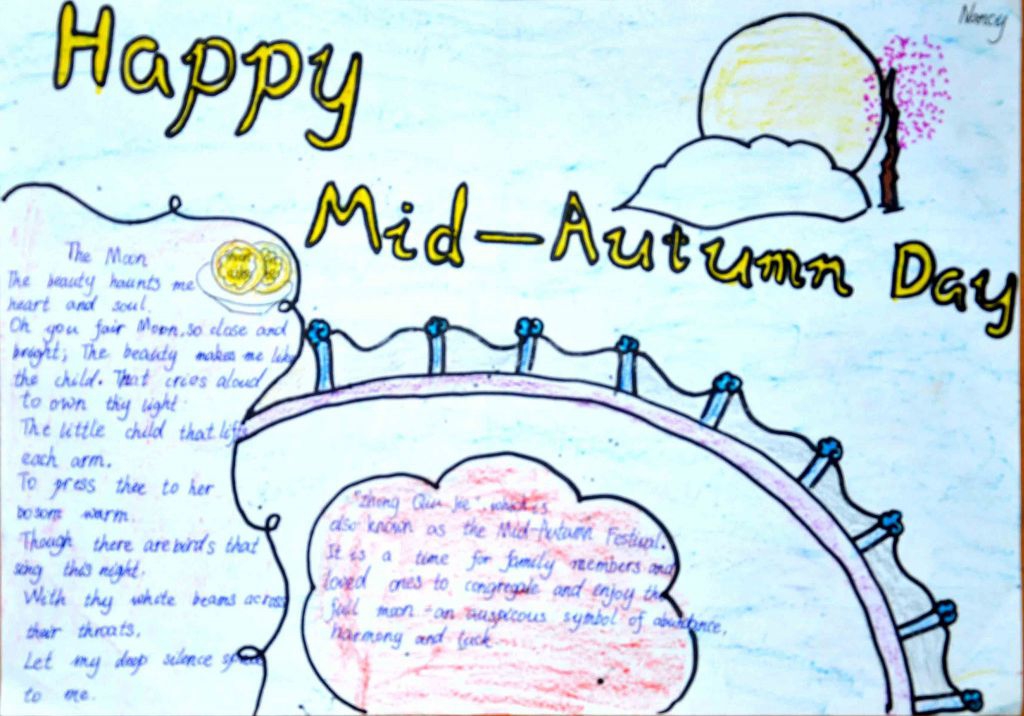 Nancy
Happy
Mid-Autumn Day
The Moon
The beauty haunts me
heart and soul.
Oh you fair Moon, so close and
bright; The beauty makes me like
the child. That cries aloud
to own thy light
The little child that lifts
each arm.
To press thee to her
bosom warm.
Though there are birds that
sing this night.
With thy white beams across
their throats.
Let my deep silence speak
to me.
"Zhong Qiu Jie", which is
also known as the Mid-Autumn Festival.
It is a time for family members and
loved ones to congregate and enjoy the
full moon-an auspicous symbol of abundance,
harmony and luck.